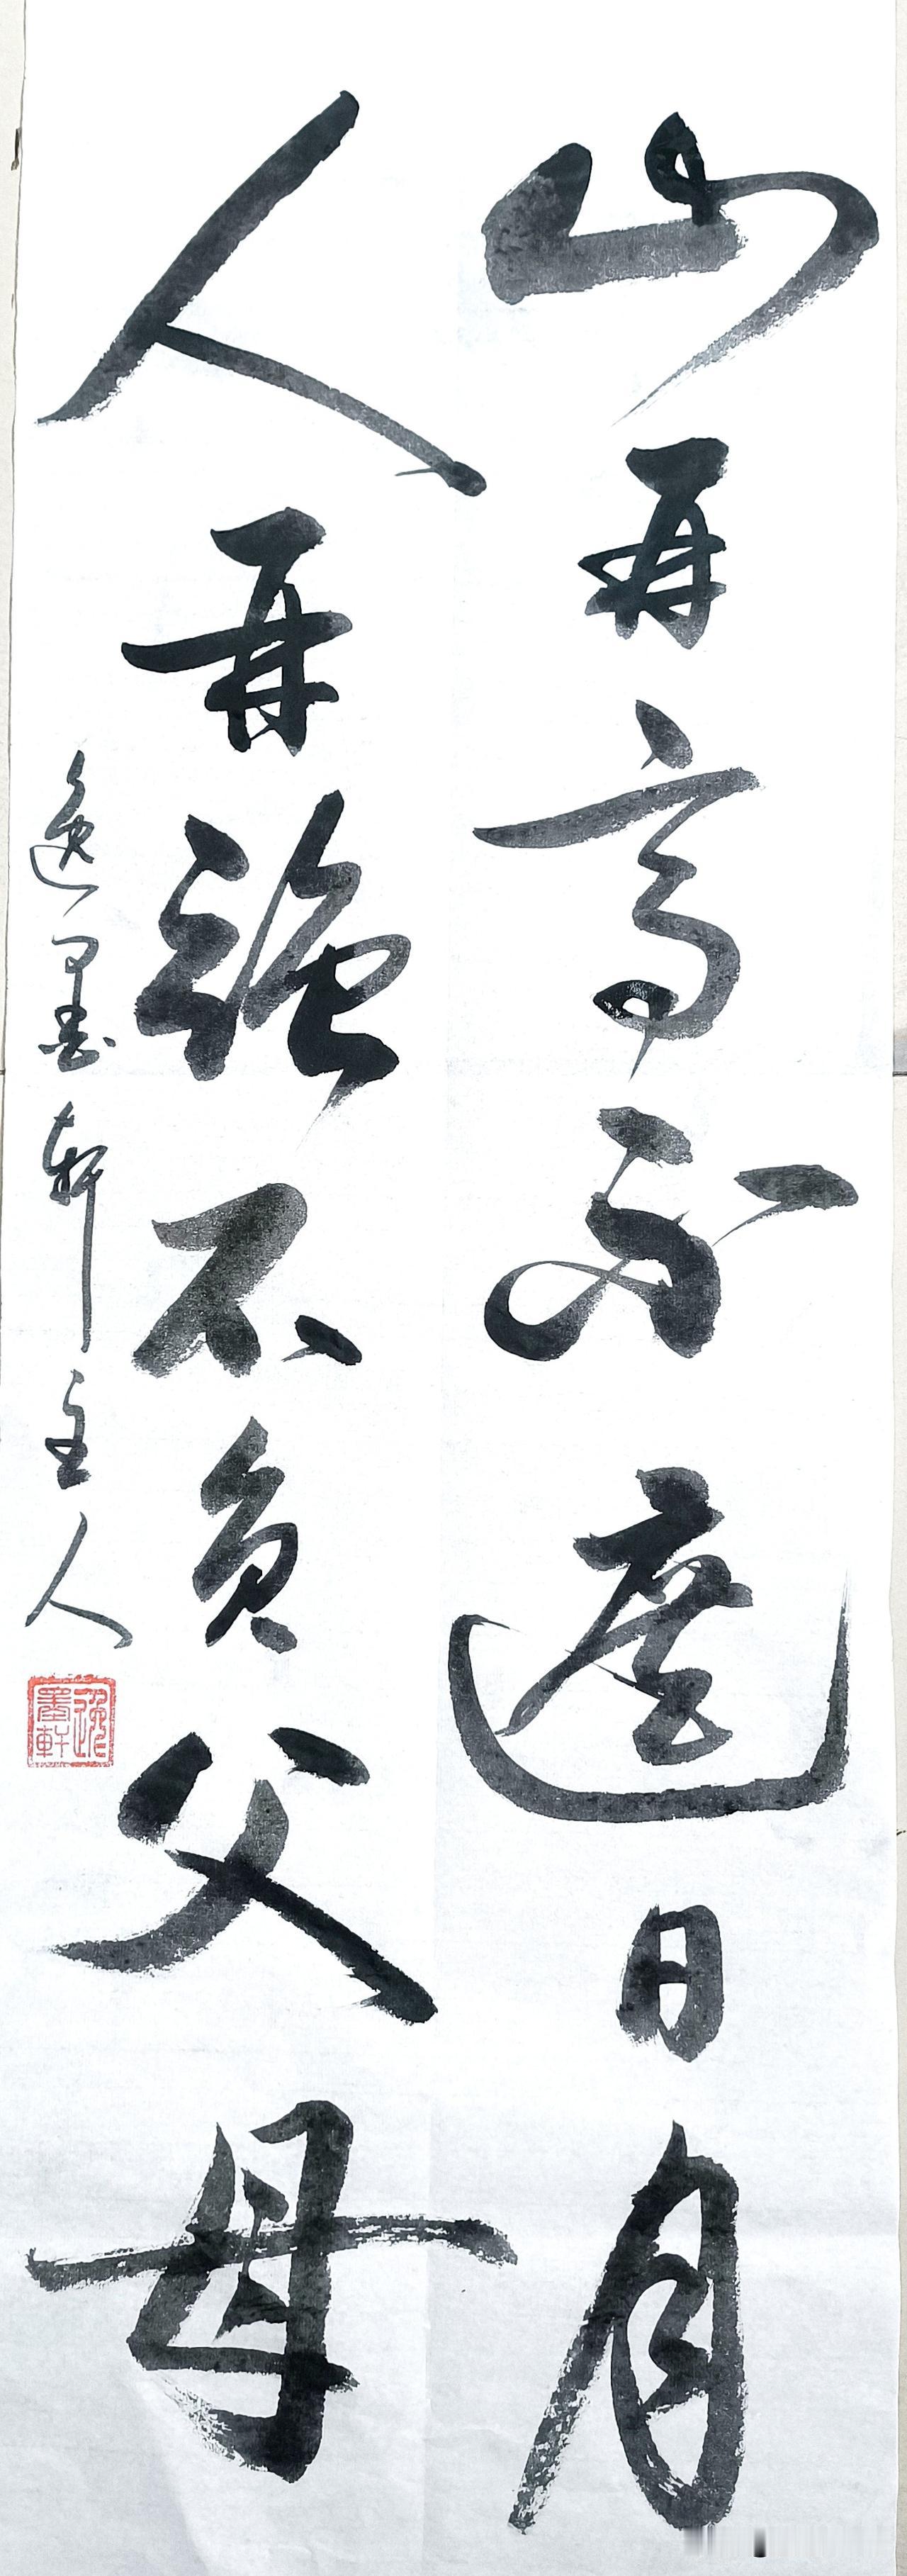 山再高不遮日月
人再強不负父母
逸墨轩主人
逸墨軒